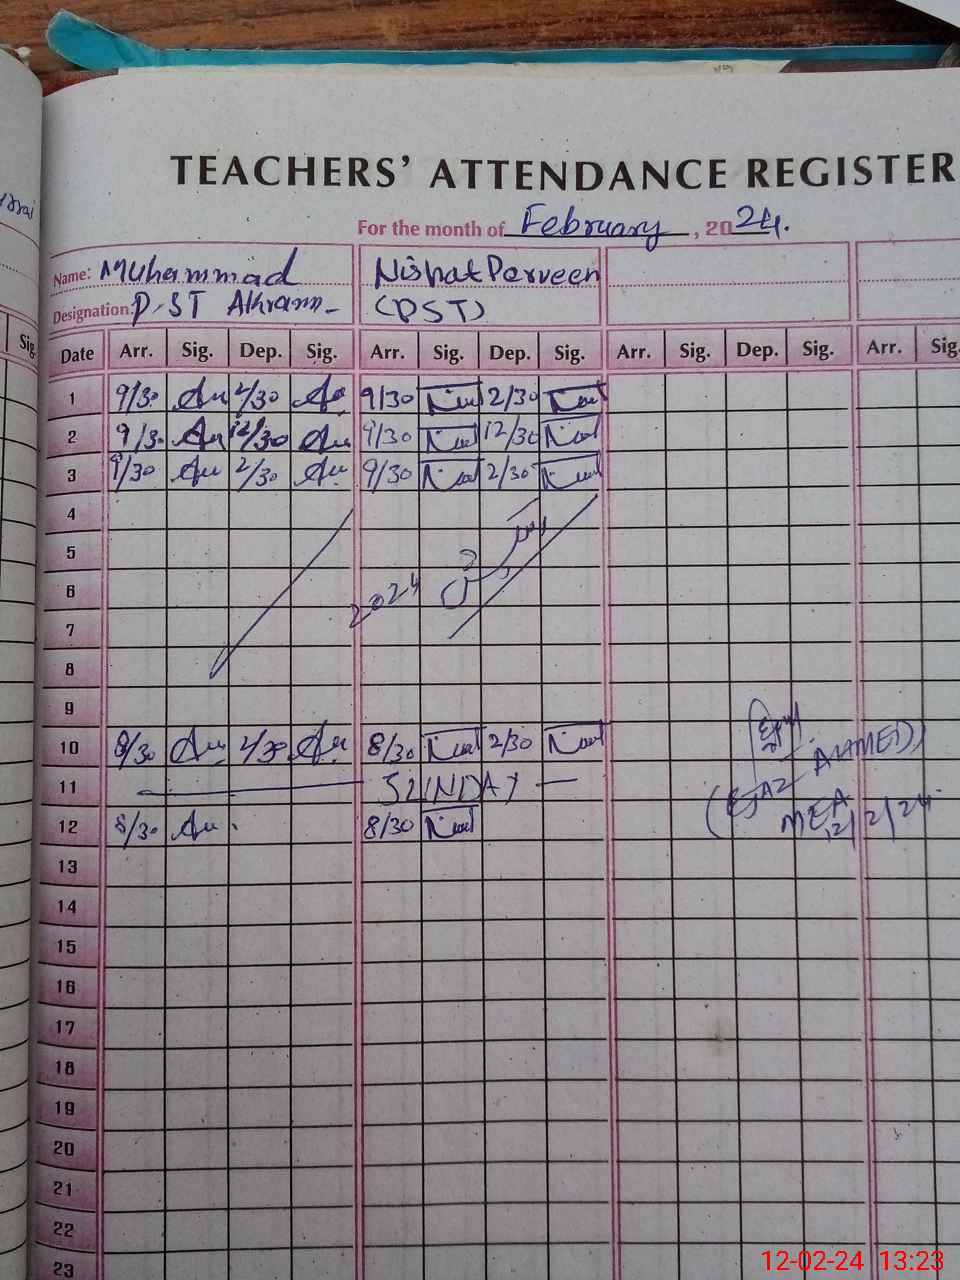 TEACHERS' ATTENDANCE REGISTER
For the month of February, 2024.
Name: Muhammad Nishat Parveen
Designation: P.ST Akram (PST)
Sig.
Date Arr. Sig. Dep. Sig. Arr. Sig. Dep. Sig. Arr. Sig. Dep. Sig. Arr. Sig.
1 9/30 2/30 9/30 2/30
2 9/30 12/30 9/30 12/30
3 9/30 2/30 9/30 2/30
4
5
6
2024
7
8
9
10 8/30 2/30 8/30 2/30
11 SUNDAY
(EJAZ AHMED)
12 8/30 8/30
MEA
12/2/24
13
14
15
16
17
18
19
20
21
22
23
12-02-24 13:23